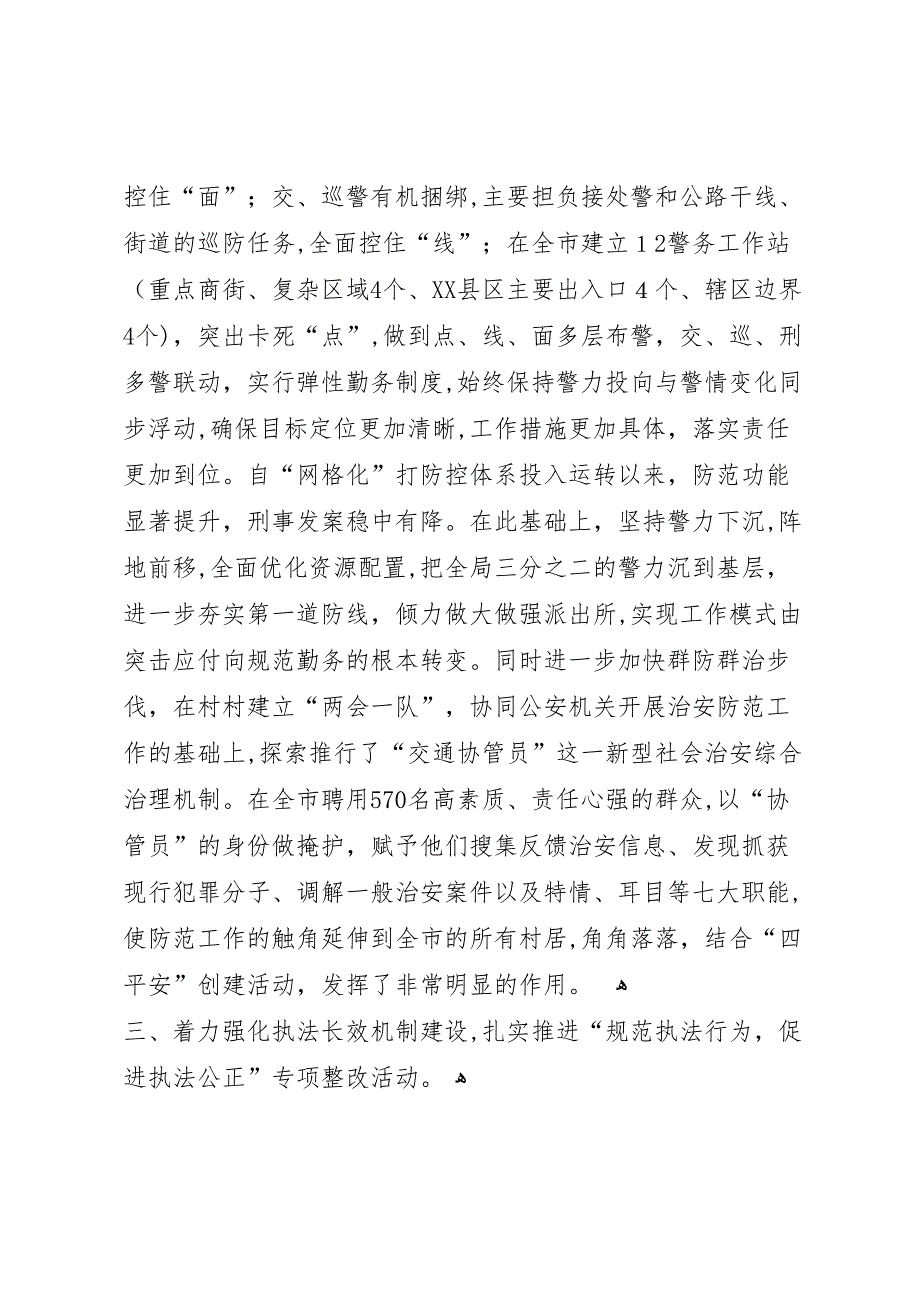 控住“面”；交、巡警有机捆绑,主要担负接处警和公路干线、
街道的巡防任务,全面控住“线”；在全市建立１２警务工作站
（重点商街、复杂区域4个、XX县区主要出入口４个、辖区边界
4个)，突出卡死“点”,做到点、线、面多层布警，交、巡、刑
多警联动，实行弹性勤务制度,始终保持警力投向与警情变化同
步浮动,确保目标定位更加清晰,工作措施更加具体，落实责任
更加到位。自“网格化”打防控体系投入运转以来，防范功能
显著提升，刑事发案稳中有降。在此基础上，坚持警力下沉,阵
地前移,全面优化资源配置,把全局三分之二的警力沉到基层，
进一步夯实第一道防线，倾力做大做强派出所,实现工作模式由
突击应付向规范勤务的根本转变。同时进一步加快群防群治步
伐，在村村建立“两会一队”，协同公安机关开展治安防范工
作的基础上,探索推行了“交通协管员”这一新型社会治安综合
治理机制。在全市聘用570名高素质、责任心强的群众,以“协
管员”的身份做掩护，赋予他们搜集反馈治安信息、发现抓获
现行犯罪分子、调解一般治安案件以及特情、耳目等七大职能,
使防范工作的触角延伸到全市的所有村居,角角落落，结合“四
平安”创建活动，发挥了非常明显的作用。 ﻫ
三、着力强化执法长效机制建设,扎实推进“规范执法行为，促
进执法公正”专项整改活动。ﻫ